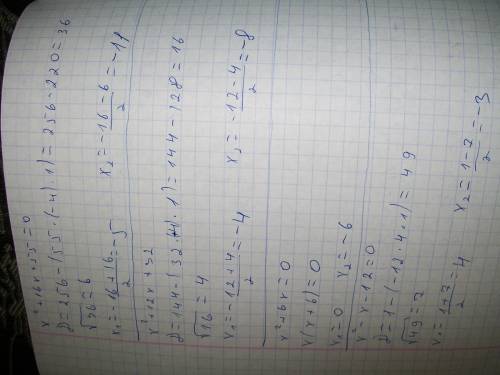 x²+16x+55=0
D=256-(55·(-4)·1)=256-220=36
√36=6
x₁=-16+6/2=-5 x₂=-16-6/2=-11
x²+12x+32
D=144-(32·(4)·1)=144-128=16
√16=4
x₁=-12+4/2=-4 x₂=-12-4/2=-8
x²+6x=0
x(x+6)=0
x₁=0 x₂=-6
x²-x-12=0
D=1-(-12·4·1)=49
√49=7
x₁=1+7/2=4 x₂=1-7/2=-3